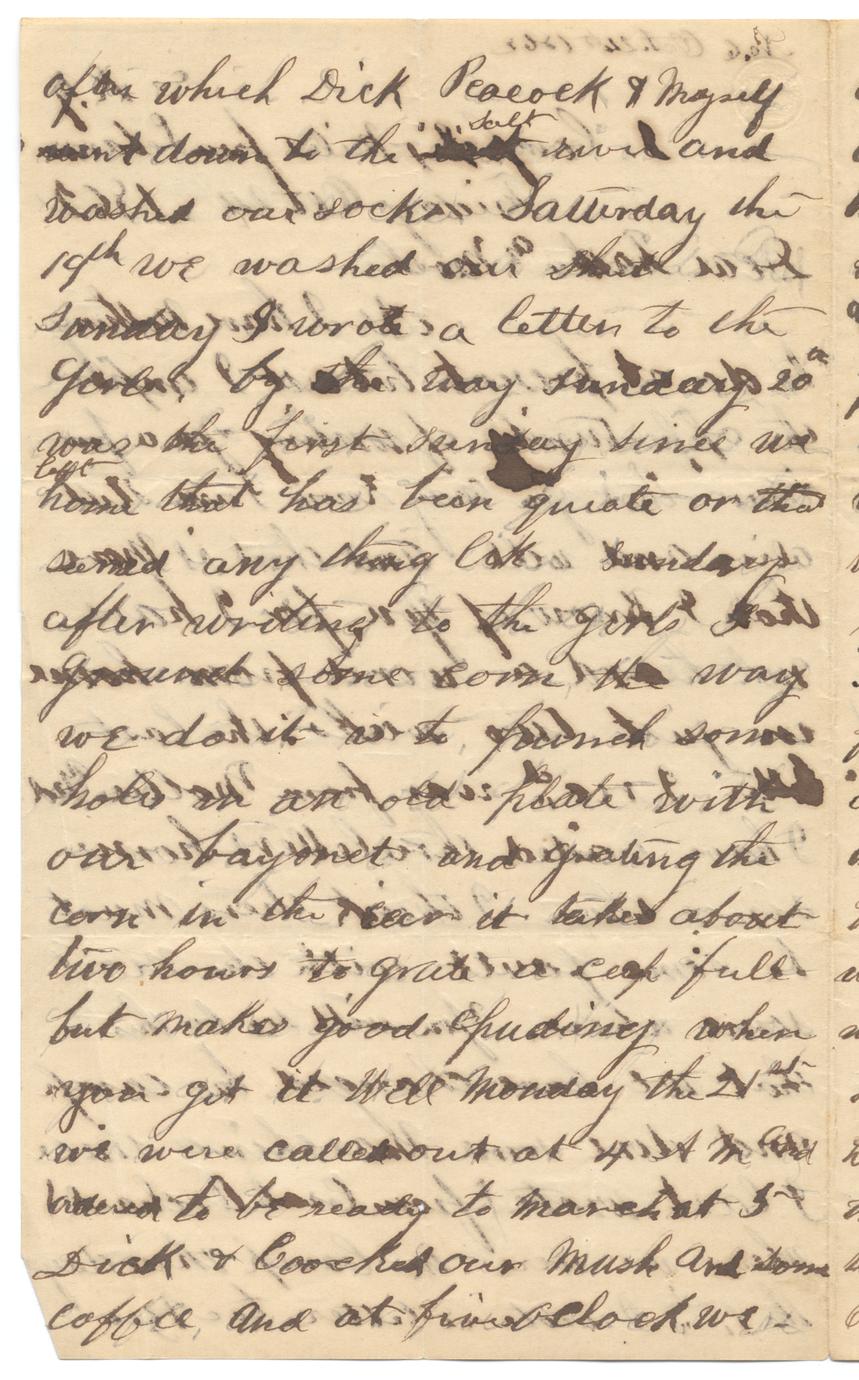 after which Dick Peacock & Myself
went down to the salt river and
washed our socks Satturday the
19th we washed our shirt
sunday I wrote a letter to the
Gorls by the way sunday 20th
was the first sunday since we
left
home that has been quiate or that
semed any thing Lik sunday
after writing to the girls I
ground some corn the way
we do it is to punch some
holes in an old plate with
our bayonet and grating the
corn in the ear it takes about
two hours to grate a cup full
but makes good puding when
you get it Well Monday the 21st
we were called out at 4 A M and
ordered to be ready to march at 5
Dick & Coocked our Mush And some
coffee and at five oclock we